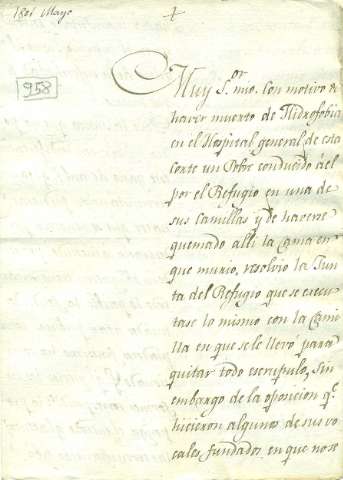 1801 Mayo
958
Muy S.or mio. Con motivo de
haver muerto de Hidrofobia
en el Hospital general de esta
Corte un Pobre conducido à el
por el Refugio en una de
sus Camillas y de haverse
quemado alli la Cama en
que murio, resolvio la Jun
ta del Refugio que se execu
tase lo mismo con la Cami
lla en que se le llevó para
quitar todo escrupulo, sin
embargo de la oposicion q.e
hicieron algunos de sus vo
cales, fundados en que no se